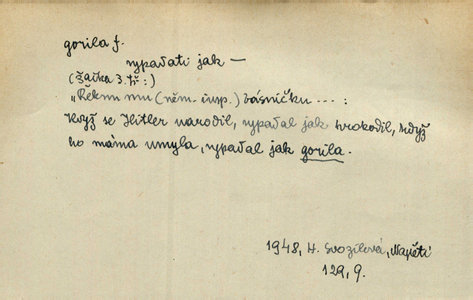 gorila f.
vypadati jak —
(žačka 3. tř:)
„Řeknu mu (něm. insp.) básničku ... :
Když se Hitler narodil, vypadal jak krokodil, když
ho máma umyla, vypadal jak gorila.
1948, H. Svozilová, Napětí
129, 9.